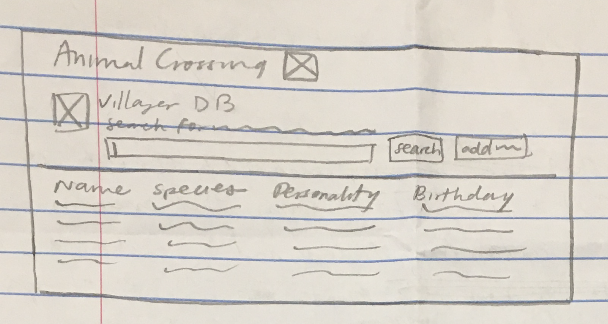 Animal Crossing
Villager DB
search for
search add
Name Species Personality Birthday